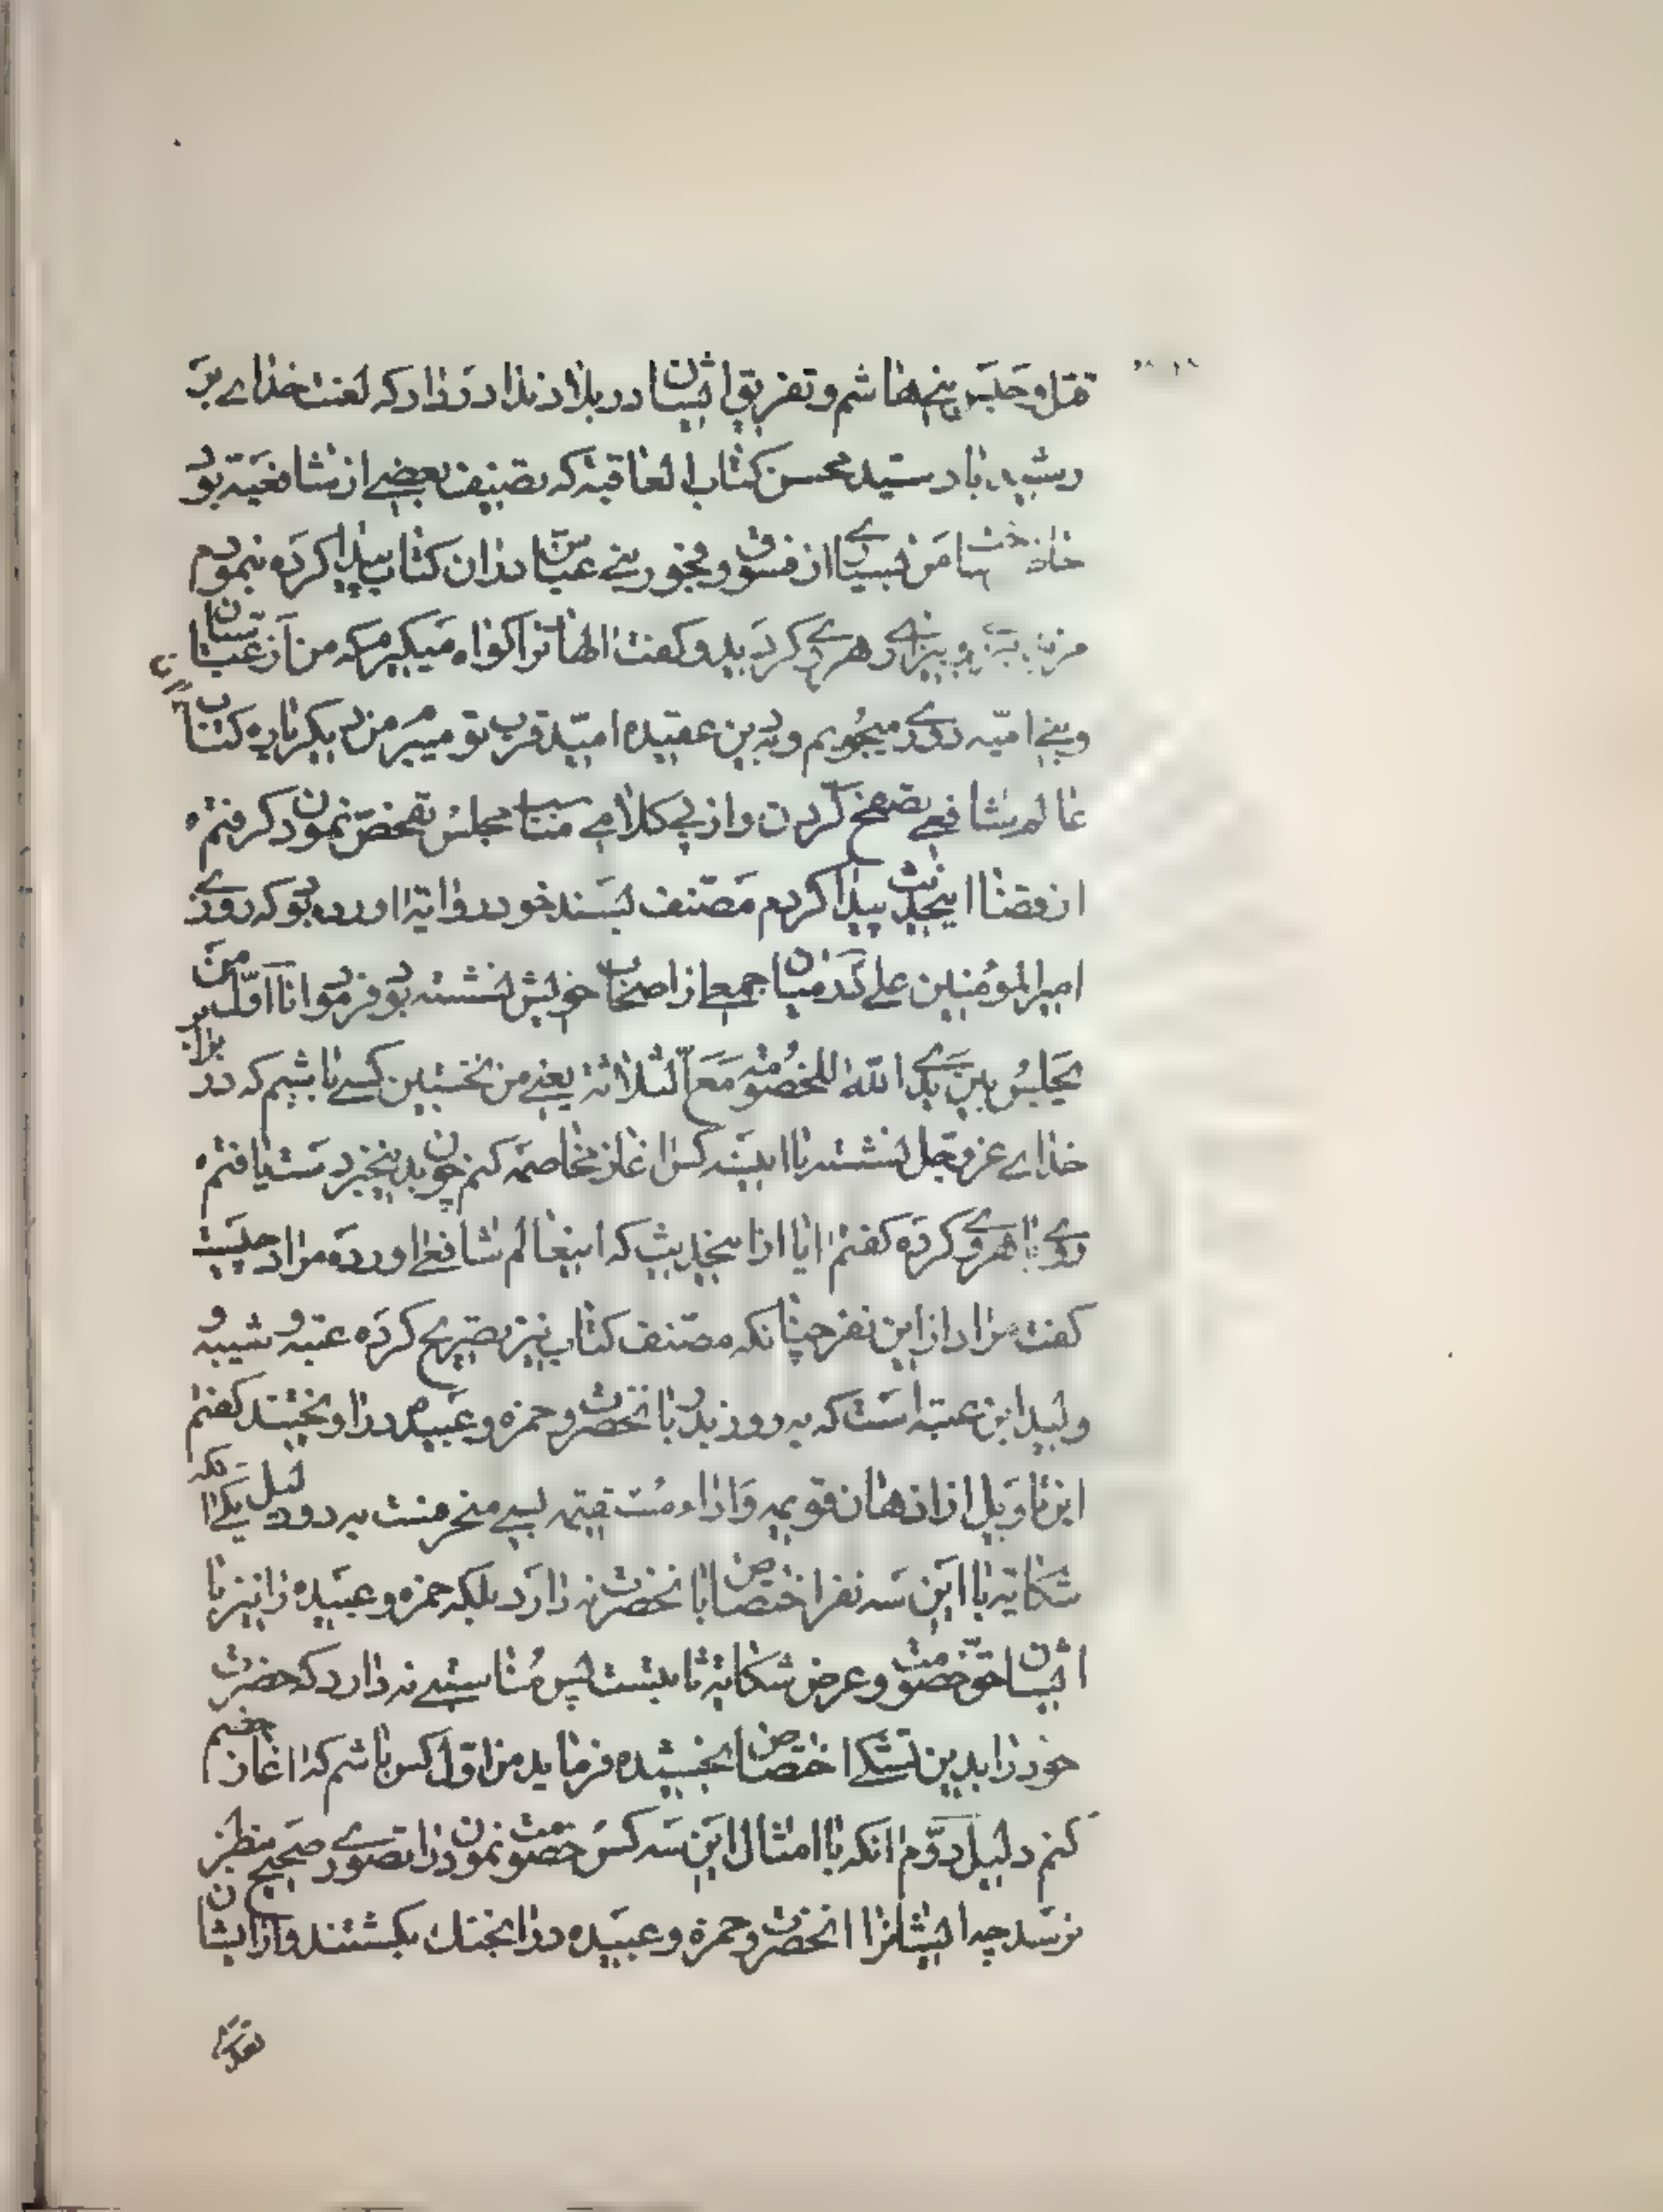 قتل و حبس بنی هاشم و تفریق ایشان در بلاد ندا در داد که لعنت خدای بر
رشید باد سید محسن کتاب العاقبة که تصنیف بعضی از شافعیة بود
من بسیاری از فسق و فجور بنی عباس در ان کتاب پیدا کرده بنمودم
هروی کردید و کفت الها ترا کواه میکیرم که من از عباسیان
و بنی امیّه دوری میجویم و بدین عقیده امید قرب تو میبرم من دیکر باره کتاب
عالم شافعی تصفح کردن و از پی کلامی مناسب مجلس تفحص نمودن کرفتم
از قضا اینحدیث پیدا کردم مصنف بسند خود روایة اورده بود که روزی
امیرالمؤمنین علی که در میان جمعی از اصحاب خویش نشسته بود فرمود انا اوّل من
یجلس بین یدی الله للخصومة مع الثلاثة یعنی من نخستین کسی باشیم که در برابر
خدای عز و جل نشسته با اینسه کس اغاز مخاصمه کنم چون بدینخبر دست یافتم
روی با هروی کرده کفتم ایا از اینحدیث که اینعالم شافعی اورده مراد چیست
کفت مراد از این نفر چنانکه مصنف کتاب نیز تصریح کرده عتبه و شیبه و
ولید ابن عتبه است که به روز بدر با انحضرت و حمزه و عبیده دراویختند کفتم
این تاویل از اذهان قویمه و اراء مستقیمه بسی منحرفست به دو دلیل یکی انکه
شکایة با این سه نفر اختصاص با نحضرت نه دارد بلکه حمزه و عبیده را نیز با
ایشان حق خصومت و عرض شکایة ثابتست پس مناسبتی نه دارد که حضرت
خود را بدین تشکی اختصاص بخشیده فرماید من اوّل کس باشم که اغاز خصم
کنم دلیل دوّم انکه با امثال این سه کس خصومت نمودن را تصوری صحیح بنظر
نرسد چه ایشانرا انحضرت و حمزه و عبیده در انجنک بکشتند و از ایشان